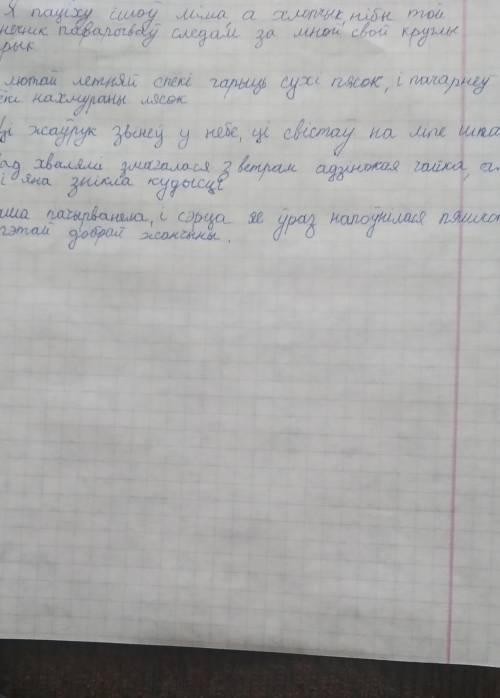 Я паціху ішоў міма а хлопчык, нібы той
паварочваў следам за мной свой круглы
лютай летняй спекі гарыць сухі пясок, і пачарнеў
нахмураны лясок
ці жаўрук звінеў у небе, ці свістаў на ліпе
хвалямі змагалася з ветрам адзінокая чайка,
і яна знікла кудысці
пачырванела, і сэрца яе ўраз напоўнілася
гэтай добрай жанчыны.